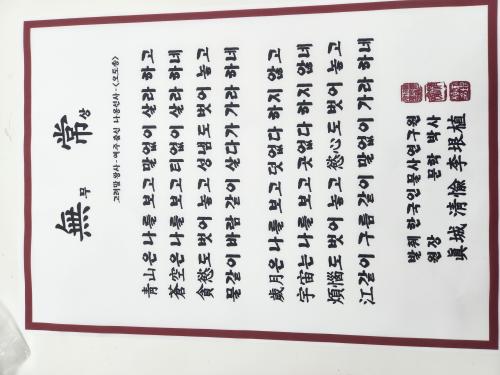 無무 常상
고려말 왕사-여주 출신 나옹선사-<오도송>
青山은 나를 보고 말없이 살라 하고
蒼空은 나를 보고 티없이 살라 하네
貪慾도 벗어 놓고 성냄도 벗어 놓고
물같이 바람 같이 살다가 가라 하네
歲月은 나를 보고 덧없다 하지 않고
宇宙는 나를 보고 곳없다 하지 않네
煩惱도 벗어 놓고 慾心도 벗어 놓고
江같이 구름같이 말없이 가라 하네
발췌 한국인물사연구원
원장 문학 박사
眞城 清愉 李垠植